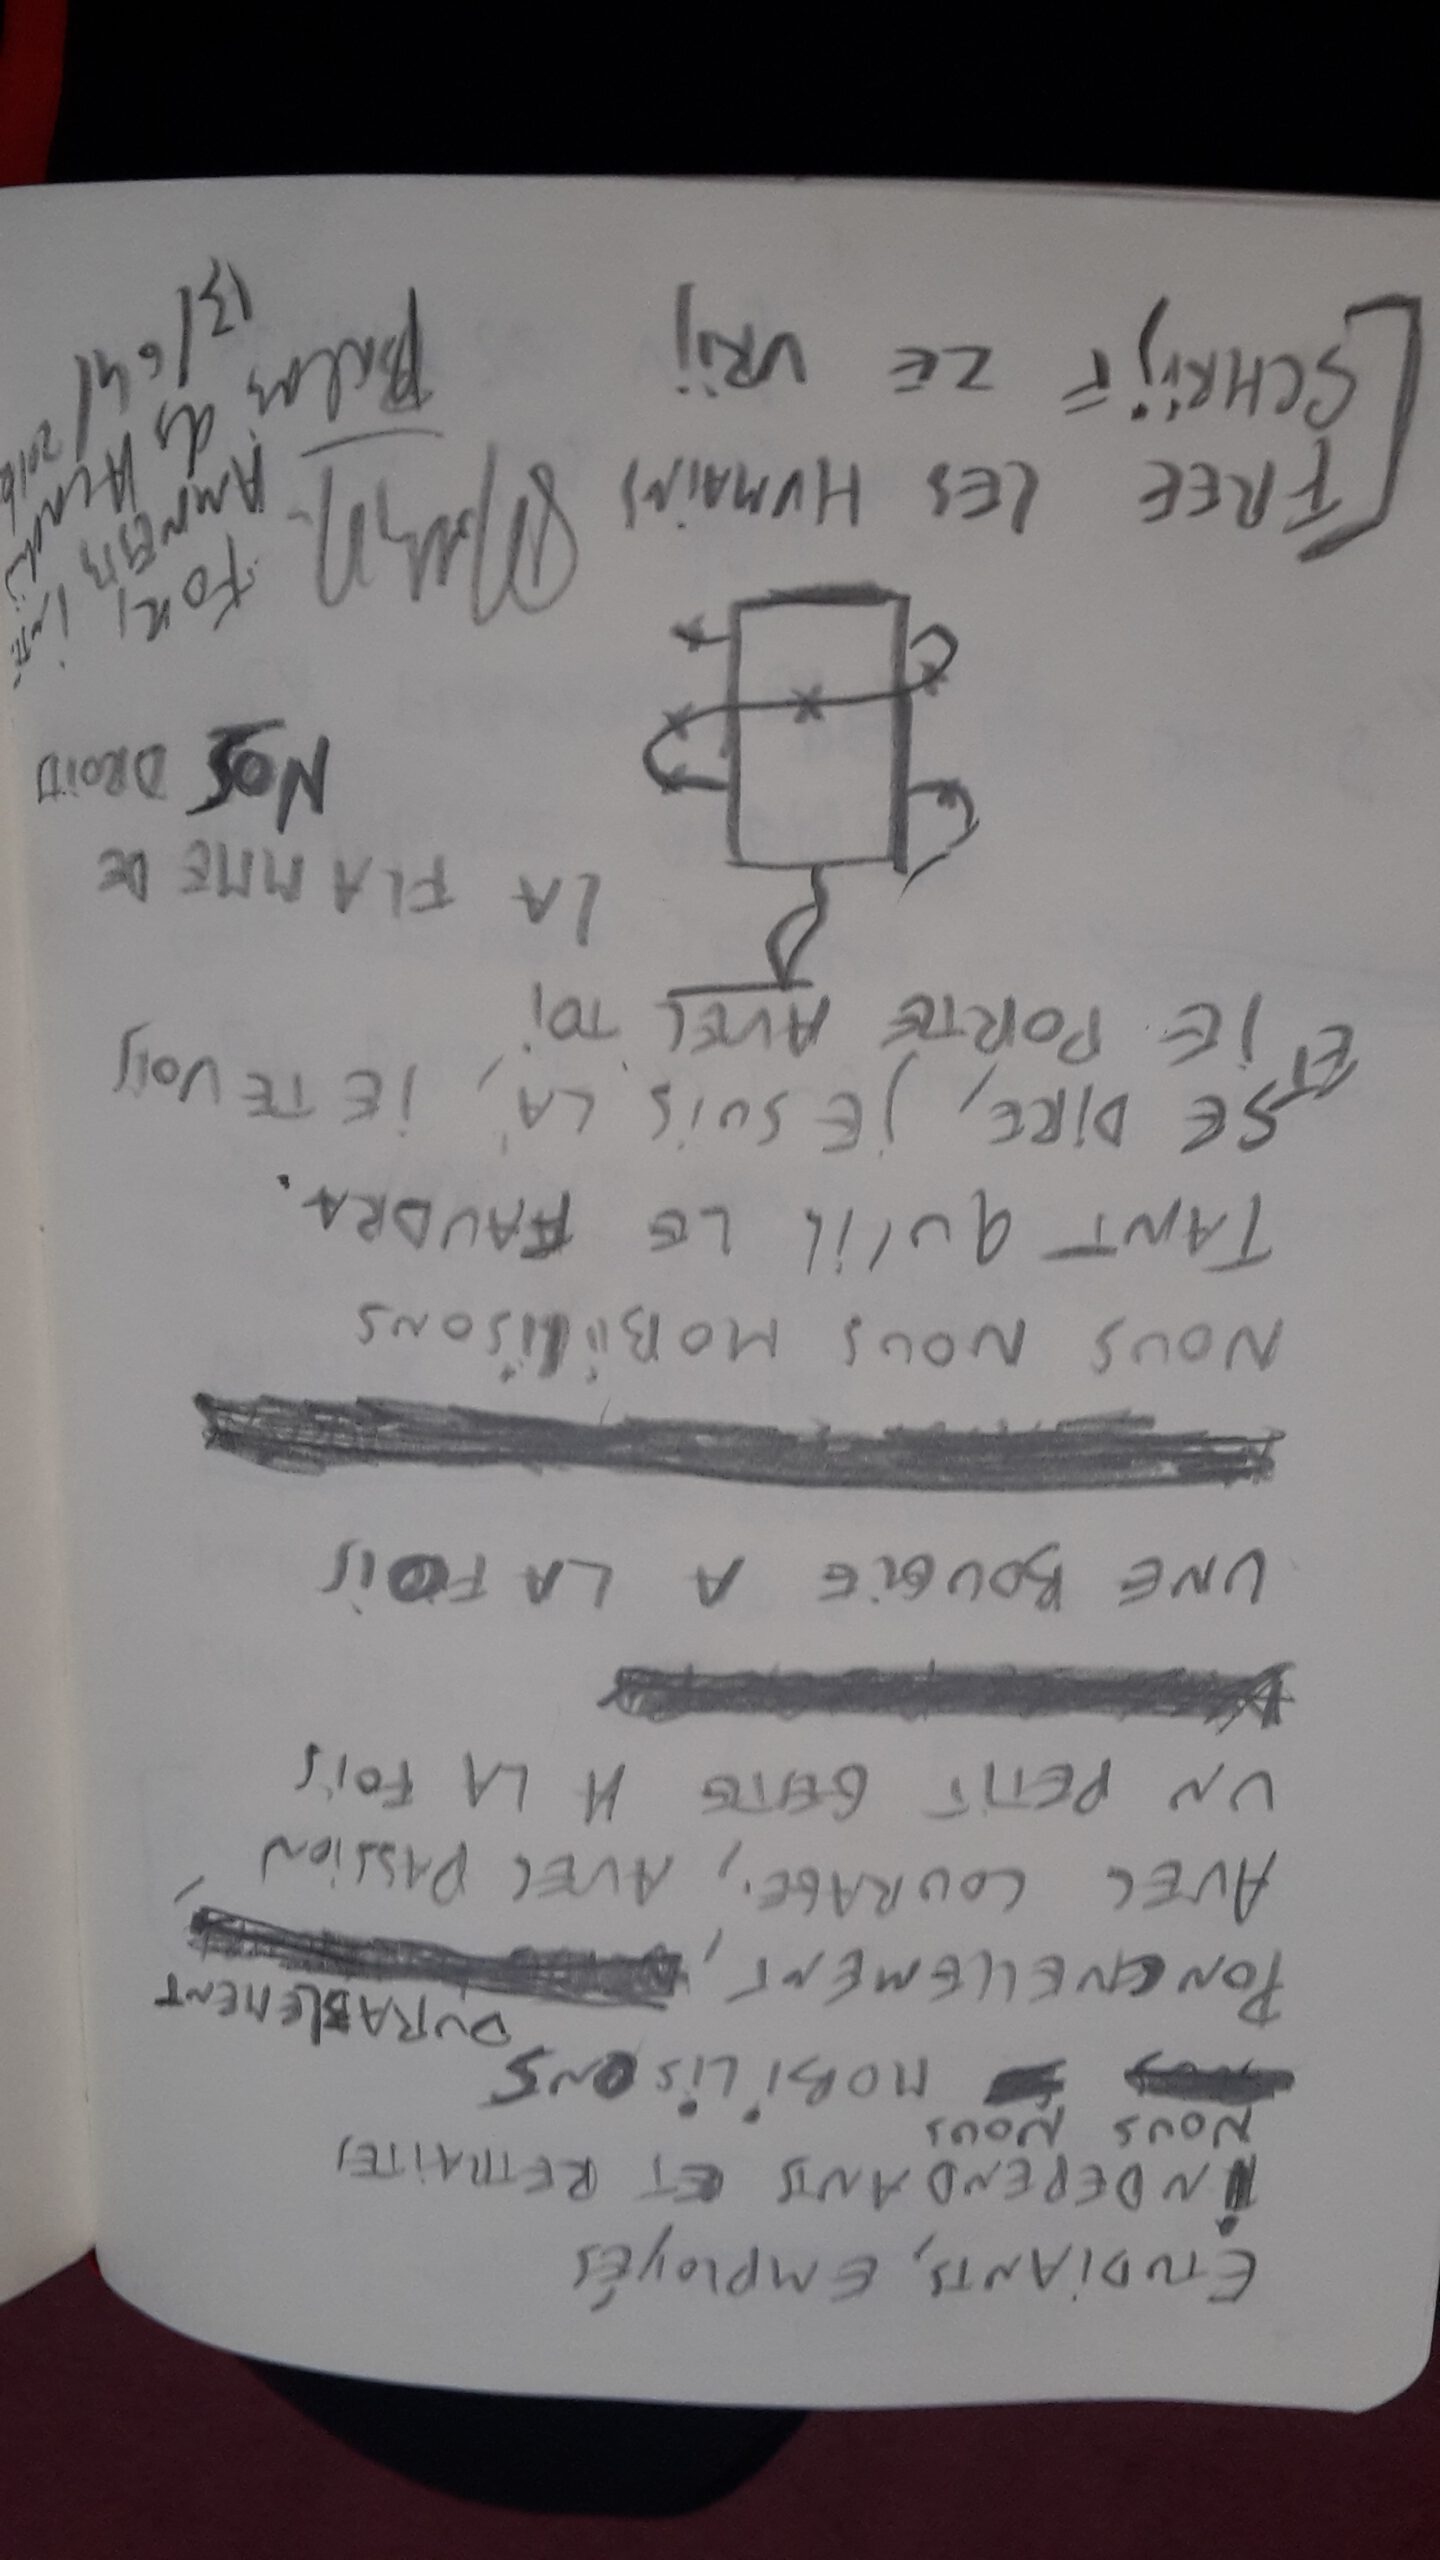 ETUDIANTS, EMPLOYÉS
INDEPENDANTS ET RETRAITES
NOUS NOUS
MOBILISONS
DURABLEMENT
PONCNELLEMENT,
AVEC COURAGE, AVEC PASSION,
UN PETIT GESTE A LA FOIS
UNE BOUGIE A LA FOIS
NOUS NOUS MOBILISONS
TANT QU'IL LE FAUDRA.
SE DIRE, JE SUIS LÀ, JE TE VOIS
ET JE PORTE AVEC TOI
LA FLAMME DE
NOS DROITS
FREE LES HUMAINS
SCHRIJF ZE VRIJ
FOR
AMNESTY INTE
13/
2016